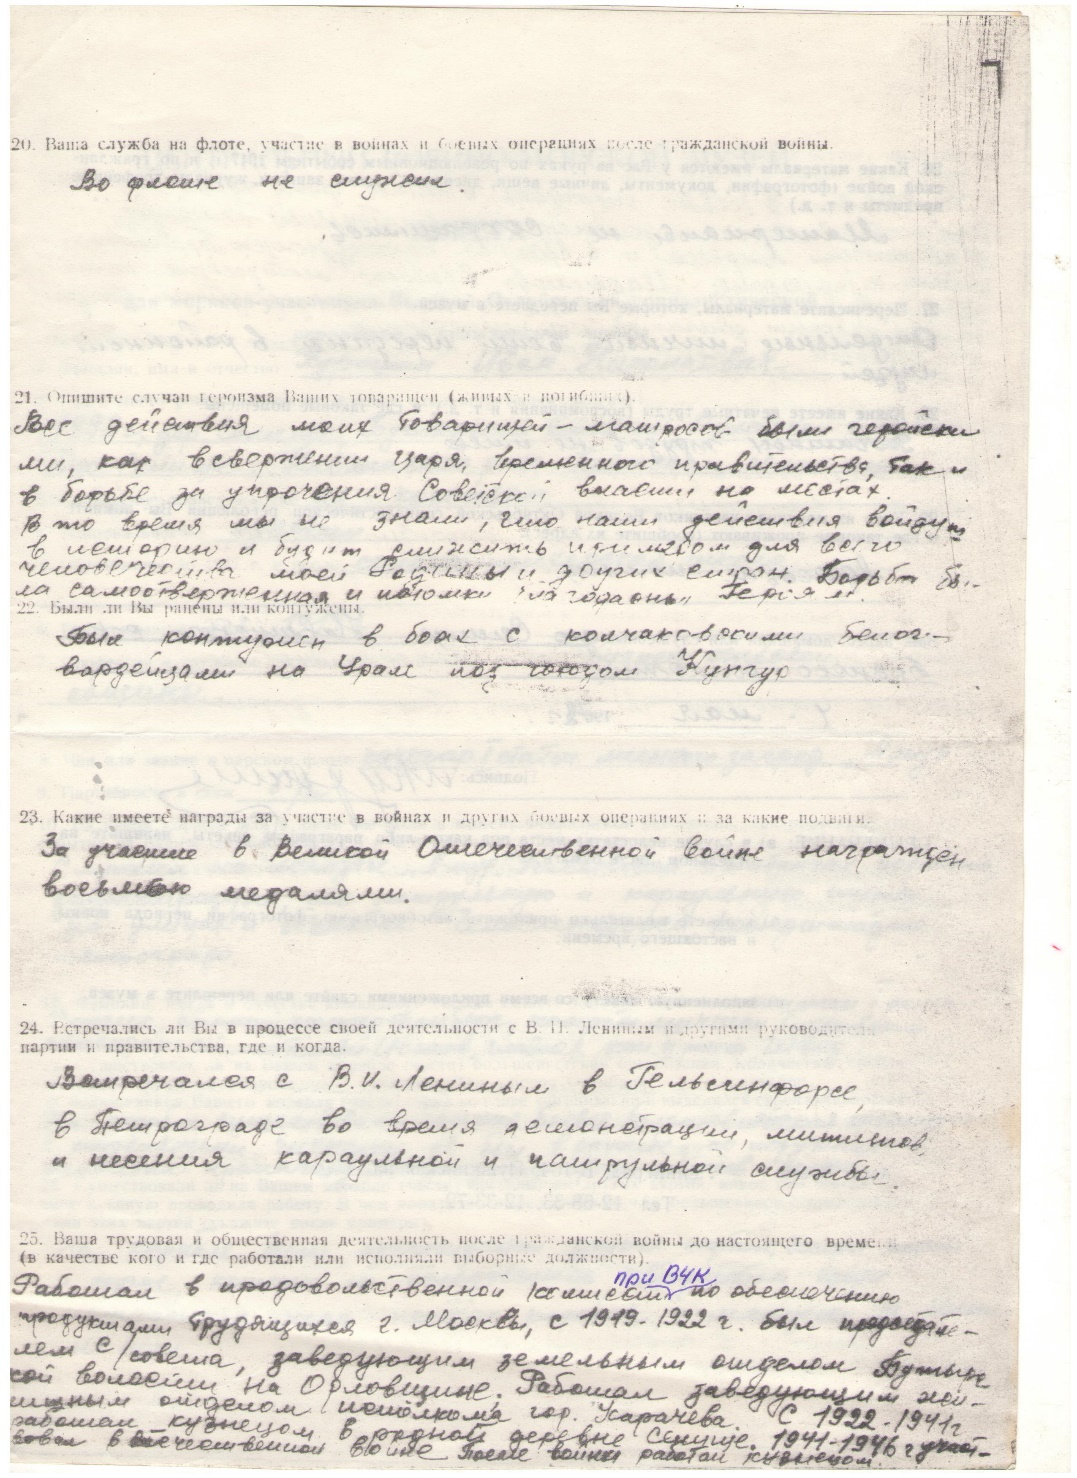 20. Ваша служба на флоте, участие в войнах и боевых операциях после гражданской войны.
Во флоте не служил.
21. Опишите случаи героизма Ваших товарищей (живых и погибших).
Все действия моих товарищей – матросов были геройски
ми, как в свержении царя, временного правительства, так и
в борьбе за упрочения Советской власти на местах.
В то время мы не знали, что наши действия войдут
в историю и будут служить примером для всего
человечества моей Родины и других стран. Борьба бы-
ла самоотверженная и потомки благодарны Героям.
22. Были ли Вы ранены или контужены.
Был контужен в боях с колчаковскими белог-
вардейцами на Урале под городом Кунгур
23. Какие имеете награды за участие в войнах и других боевых операциях и за какие подвиги.
За участие в Великой Отечественной войне награжден
восьмью медалями.
24. Встречались ли Вы в процессе своей деятельности с В. И. Лениным и другими руководителя
партии и правительства, где и когда.
Встречался с В.И. Лениным в Гельсинфорсе,
в Петрограде во время демонстрации, митингов,
и несения караульной и патрульной службы.
25. Ваша трудовая и общественная деятельность после гражданской войны до настоящего времени
(в качестве кого и где работали или исполняли выборные должности).
при ВЧК
Работал в продовольственной комиссии по обеспечению
продуктами трудящихся г. Москвы, с 1919-1922 г. был председате-
лем С/совета, заведующим земельным отделом
кой волости на Орловщине. Работал заведующим жи-
лищным отделом исполкома гор. Карачева. С 1922-1941г
работал кузнецом в родной деревне 1941-1946 г участ-
вовал в отечественной войне После войны работал кузнецом